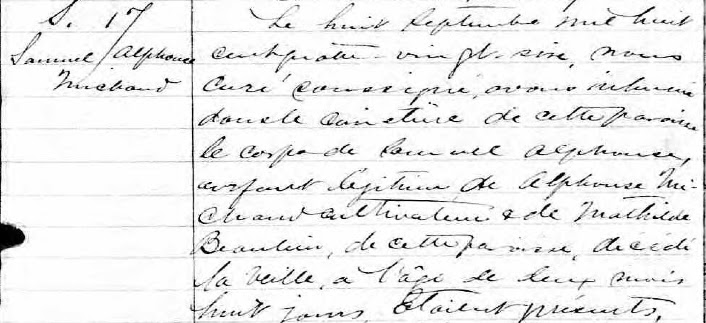 S. 17
Samuel Alphonse
Michaud
Le huit Septembre mil huit
cent quatre-vingt-six, nous
Curé soussigné, avons inhumé
dans le cimetière de cette paroisse
le corps de Samuel Alphonse,
enfant légitime de Alphonse Mi-
chaud cultivateur & de Mathilde
Beaulieu, de cette paroisse, décédé
la veille, a l'âge de deux mois
huit jours. Etaient présents,